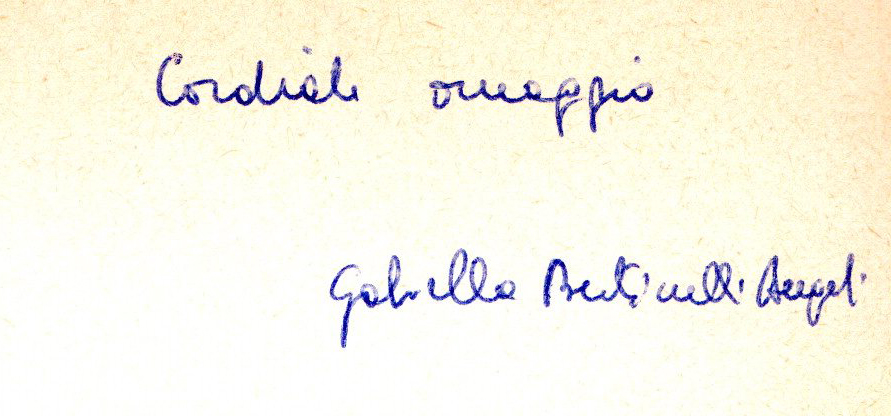 Cordiale omaggio
Gabriella Bertinelli Angeli